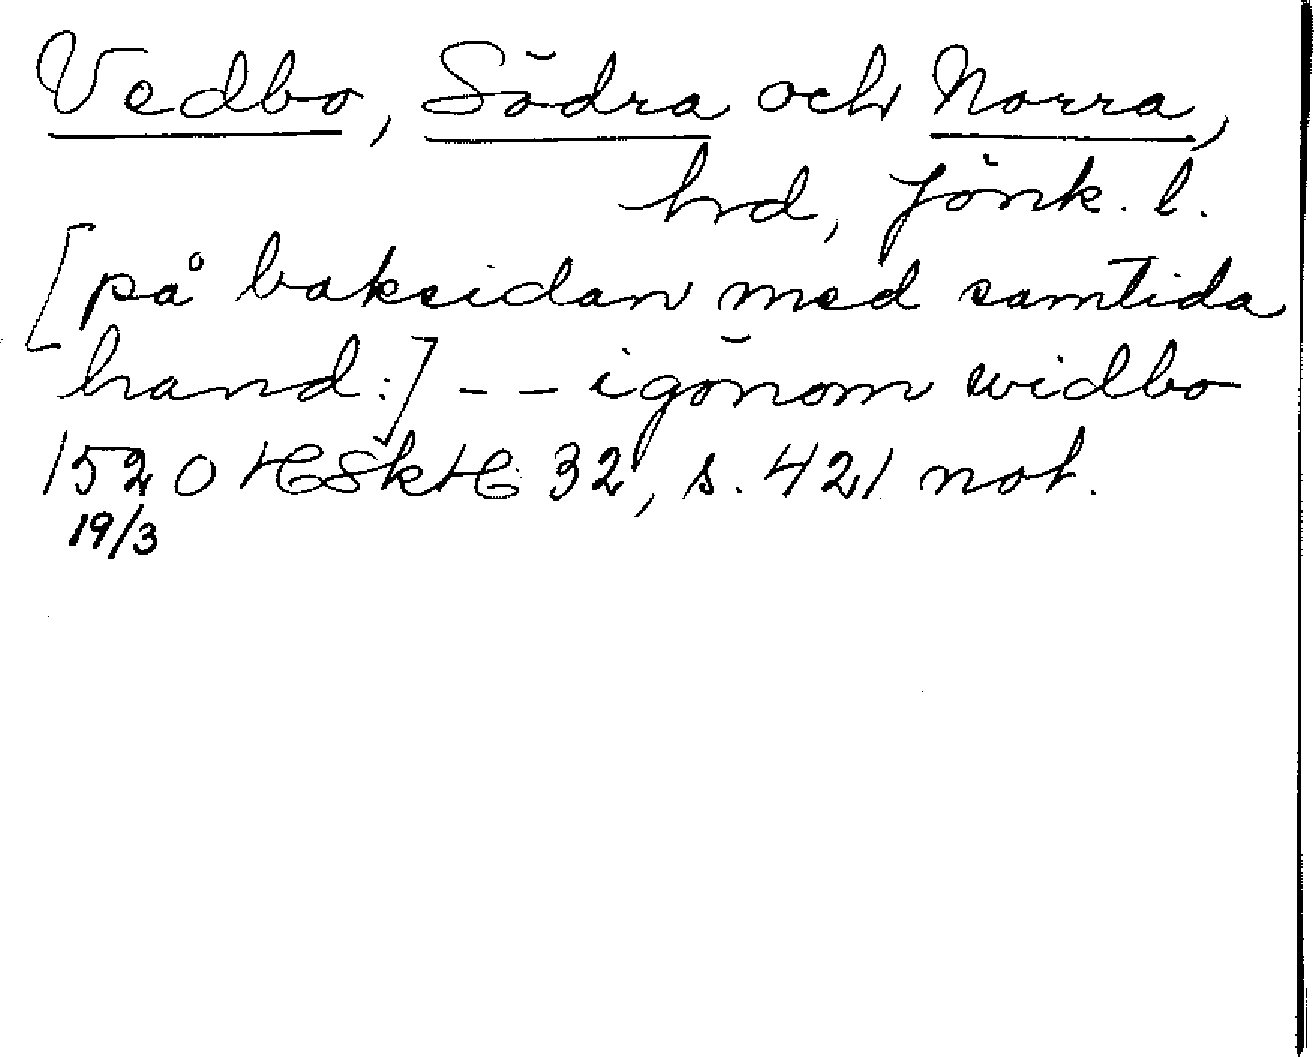 Vedbo, Södra och Norra,
hrd, Jönk. l.
[på baksidan med samtida
hand:] -- igönom widbo
1520 HSkH 32, s. 421 not.
19/3